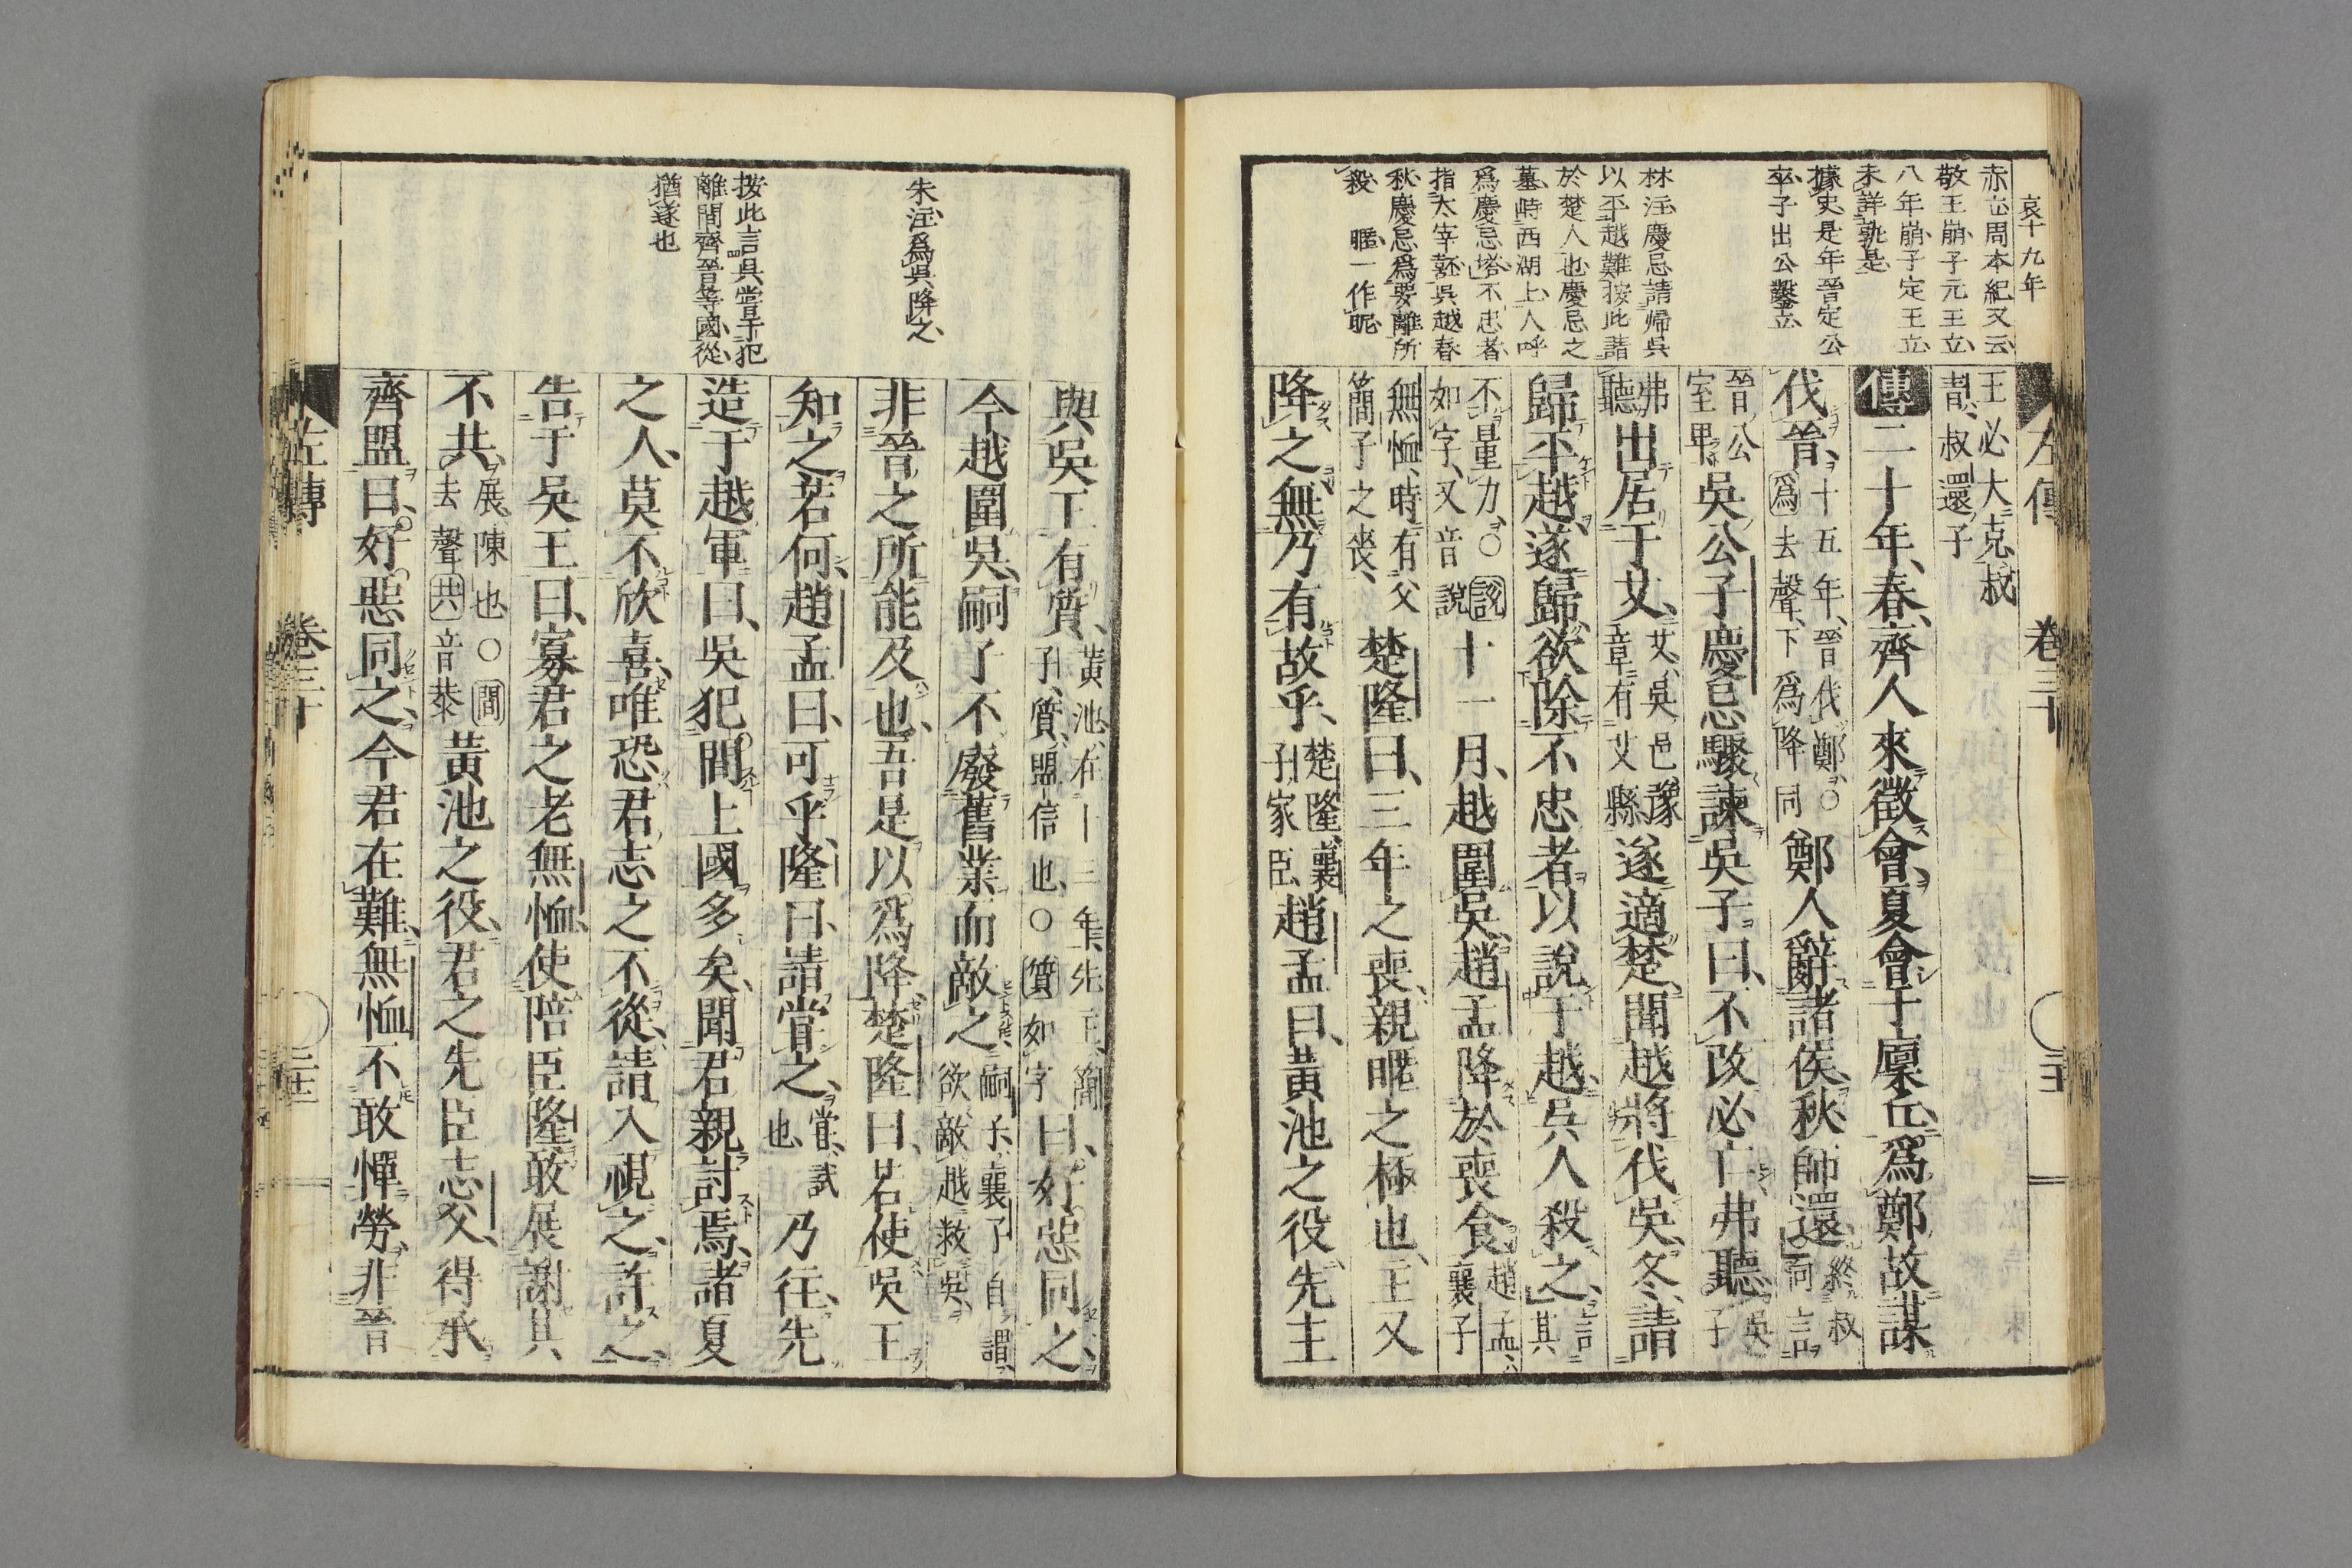 哀十九年
赤也周本紀又云
敬王崩子元王立
八年崩子定王立
未詳孰是
據史是年晉定公
卒子出公鑿立
林注慶忌請帰吳
以平越難按此請
於楚人也慶忌之
墓時西湖上人呼
爲慶忌塔不忠者
指大宰嚭吳越春
秋慶忌爲要離所
殺 暱一作昵
左傳 卷三十
王必大克叔
青叔還子
傳二十年春齊人來徵會夏會于廩丘爲鄭故謀
伐晉十五年晉伐鄭○爲去聲下爲降同鄭人辭諸侯秋師還終叔向言
晉公室卑吳公子慶忌驟諫吳子曰不改必亡弗聽吳子
弗聽出居于艾艾吳邑豫章有艾縣遂適楚聞越將伐吳冬請
歸平越遂歸欲除不忠者以說于越吳人殺之言其
不量力○說如字又音說十一月越圍吳趙孟降於喪食趙孟襄子
無恤時有父簡子之喪楚隆曰三年之喪親暱之極也主又
降之無乃有故乎楚隆襄子家臣趙孟曰黃池之役先主
朱注爲吳降之
按此言吳嘗于犯
離間齊晉等國從
猶遂也
與吳王有質黃池在十三年先主簡子質盟信也○質如字曰好惡同之
今越圍吳嗣子不廢舊業而敵之嗣子襄子自謂欲敵越救吳
非晉之所能及也吾是以爲降楚隆曰若使吳王
知之若何趙孟曰可乎隆曰請嘗之嘗試也乃往先
造于越軍曰吳犯間上國多矣聞君親討焉諸夏
之人莫不欣喜唯恐君志之不從請入視之許之
告于吳王曰寡君之老無恤使陪臣隆敢展謝其
不共展陳也○間去聲共音恭黃池之役君之先臣志父得承
齊盟曰好惡同之今君在難無恤不敢憚勞非晉
左傳 卷三十